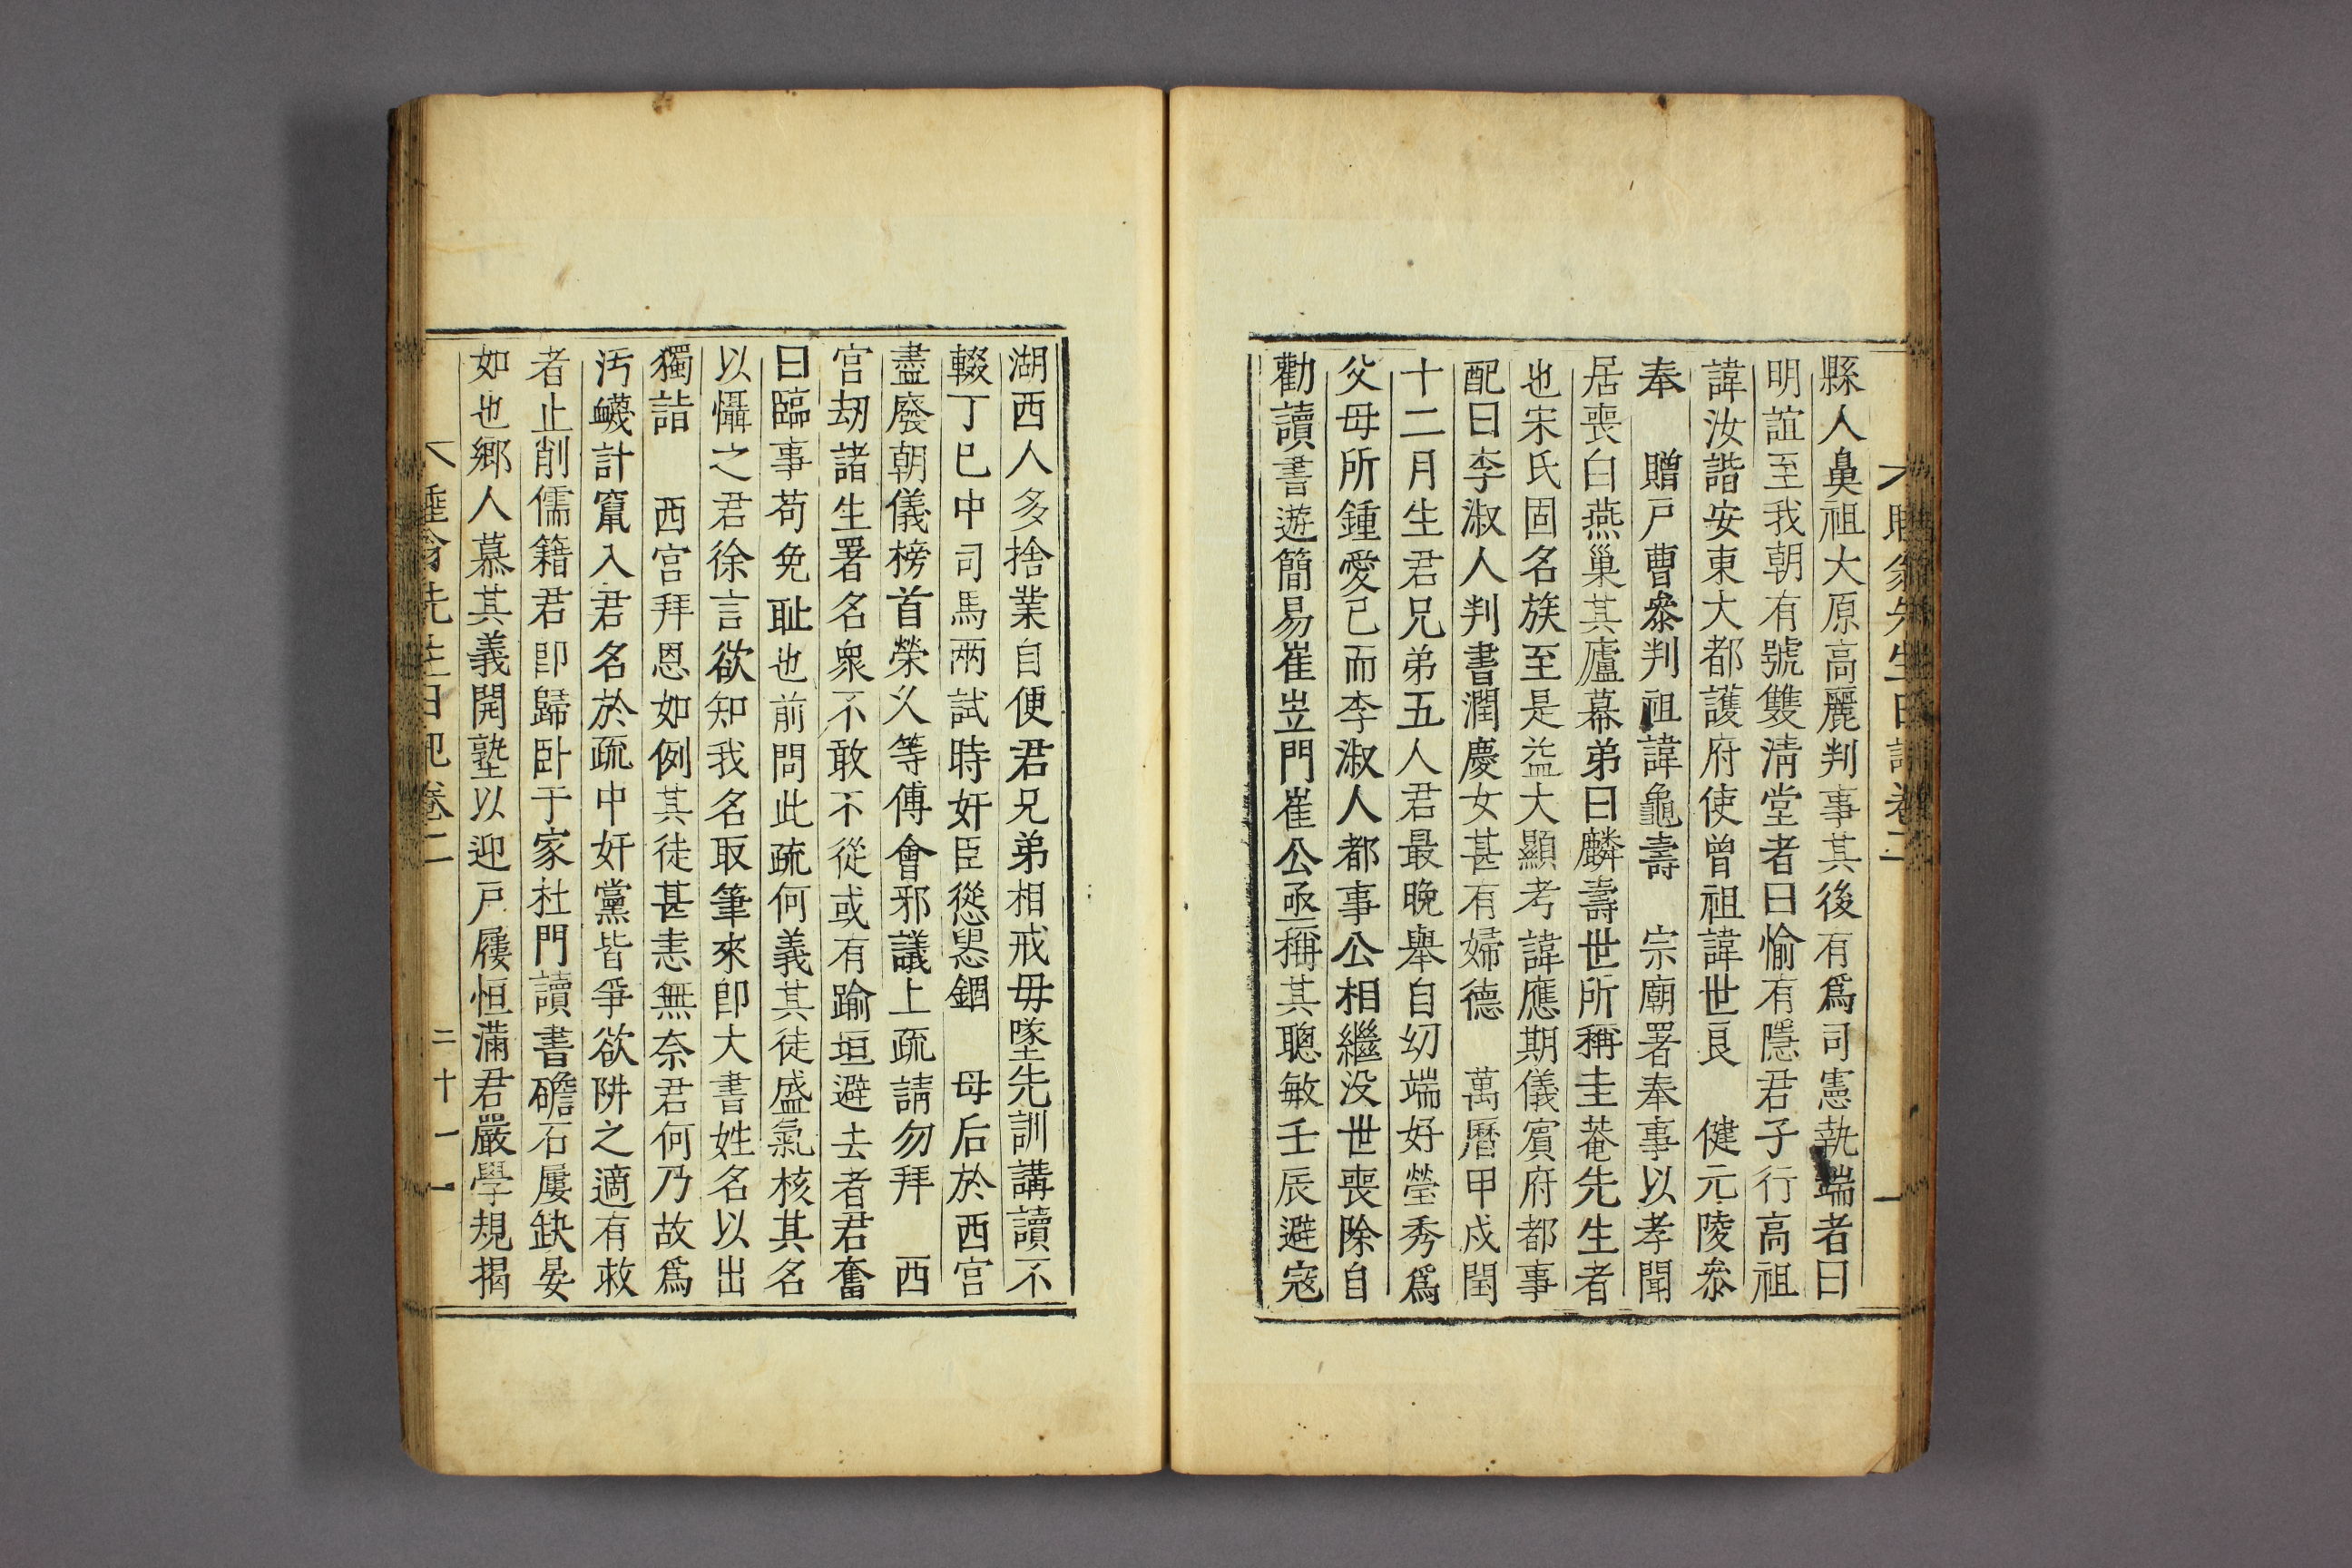 縣人鼻祖大原高麗判事其後有爲司憲執端者曰
明誼至我朝有號雙淸堂者曰愉有隱君子行高祖
諱汝諧安東大都護府使曾祖諱世良　健元陵叅
奉　贈戸曹叅判祖諱龜壽　宗廟署奉事以孝聞
居喪白燕巢其廬幕弟曰麟壽世所稱圭菴先生者
也宋氏固名族至是益大顯考諱應期儀賓府都事
配曰李淑人判書潤慶女甚有婦德　萬曆甲戍閏
十二月生君兄弟五人君最晚舉自㓜端好瑩秀爲
父母所鍾愛已而李淑人都事公相繼没世喪除自
勸讀書遊簡易崔岦門崔公亟稱其聰敏壬辰避寇
湖西人多捨業自便君兄弟相戒毋墜先訓講讀不
輟丁巳中司馬兩試時奸臣慫慂錮　母后於西宮
盡廢朝儀榜首榮久等傅會邪議上疏請勿拜　西
宮刼諸生署名衆不敢不從或有踰垣避去者君奮
曰臨事苟免耻也前問此疏何義其徒盛氣核其名
以懾之君徐言欲知我名取筆來卽大書姓名以出
獨詣　西宮拜恩如例其徒甚恚無奈君何乃故爲
汚衊計竄入君名於疏中奸黨皆爭欲阱之適有救
者止削儒籍君卽歸臥于家杜門讀書礶石屢缺晏
如也鄉人慕其義開塾以迎戸屨恒滿君嚴學規揭
睡翁先生日記卷二　二十一　一